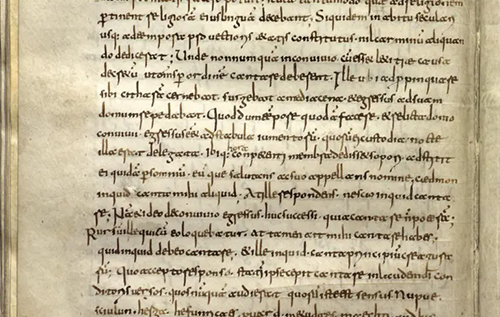 pertinent religiosā eius linguā decebant; Siquidem in abitu seculari
usq; ad tempora provectioris ætatis constitutus, nil carminū aliquan
do dedicerat; Unde nonnumquā in convivio, cū esset lætitiæ causa
decretū ut oms per ordinē cantare deberent. Ille ubi adpropinquare
sibi citharā cernebat, surgebat a media cena, & egressus ad suam
domum repedabat. Quod dum tempore quodā faceret, & relicta domo
convivii egressus ess& ad stabula iumentorū, quorū ei custodia nocte
illa erat delegata, ibiq; hora conpetenti membra dedisset sopori, adstitit
ei quidā p somniū, eumque salutans ac suo appellans nomine, cædmon
inquid canta mihi aliquid. At ille respondens, nescio inquid canta
re; Nā & ideo de convivio egressus huc secessi, quia cantare n poterā;
Rursū ille qui cū eo loquebatur, at tamen ait mihi cantare habes,
quid inquid debeo cantare, & ille inquid canta principiū creaturarū
Quo accepto responso, statī ipse cepit cantare in laudē di con
ditoris versus, quos nūquā audierat quorū iste est sensus Nunc